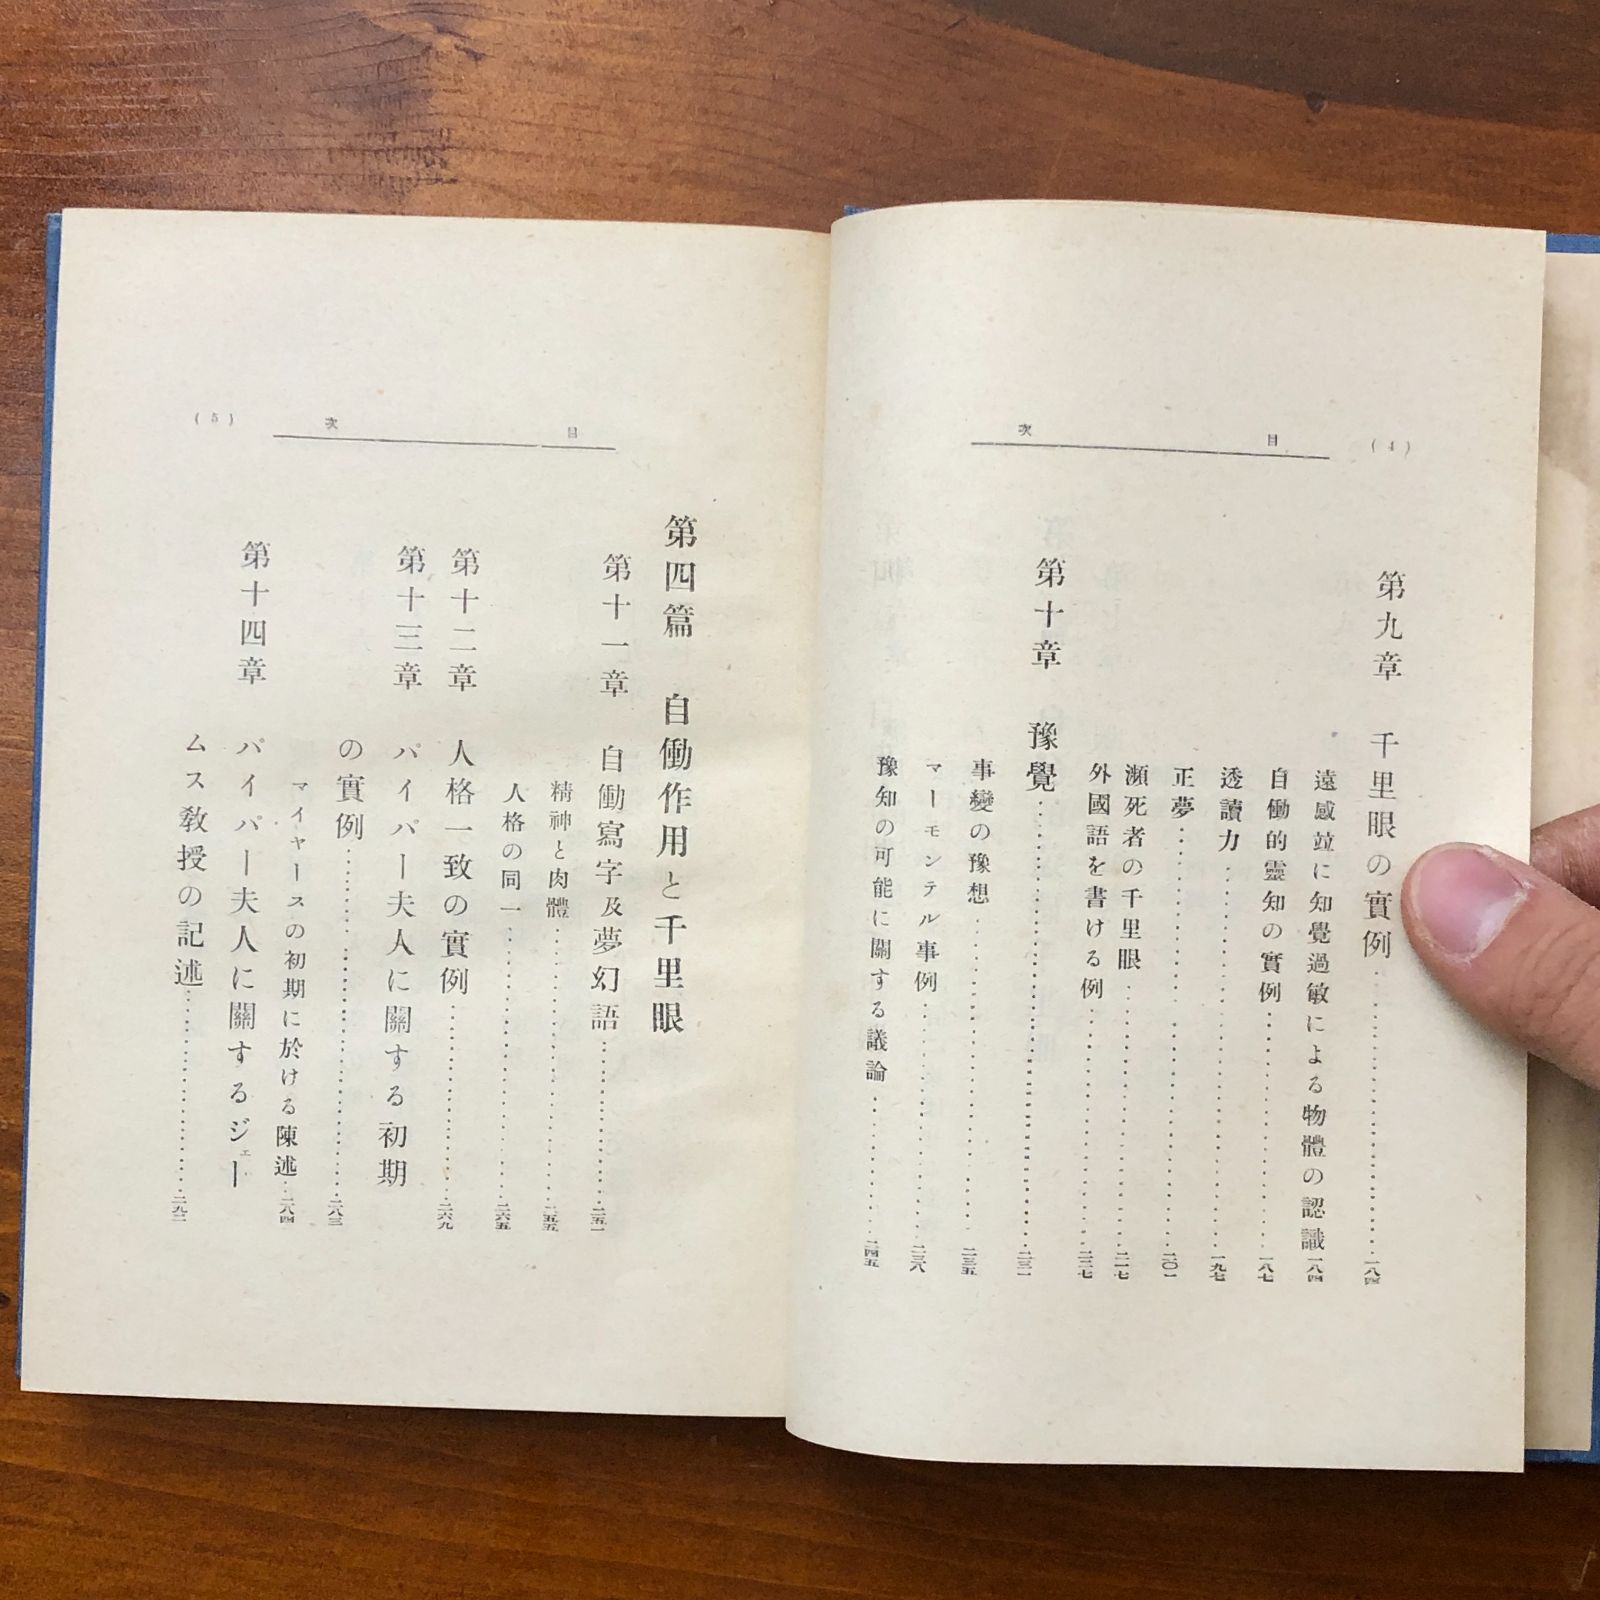 目次
(4)
第九章 千里眼の實例……一八四
遠感竝に知覺過敏による物體の認識 一八四
自働的靈知の實例……一八七
透讀力……一九七
正夢……二〇一
瀕死者の千里眼……二一七
外國語を書ける例……二二七
第十章 豫覺……二三一
事變の豫想……二三五
マーモンテル事例……二三八
豫知の可能に關する議論……二四五
目次
(5)
第四篇 自働作用と千里眼
第十一章 自働寫字及夢幻語……二五一
精神と肉體……二五五
人格の同一……二六五
第十二章 人格一致の實例……二六九
第十三章 パイパー夫人に關する初期
の實例……二八三
マイヤースの初期に於ける陳述…二八四
第十四章 パイパー夫人に關するジェー
ムス敎授の記述……二九二